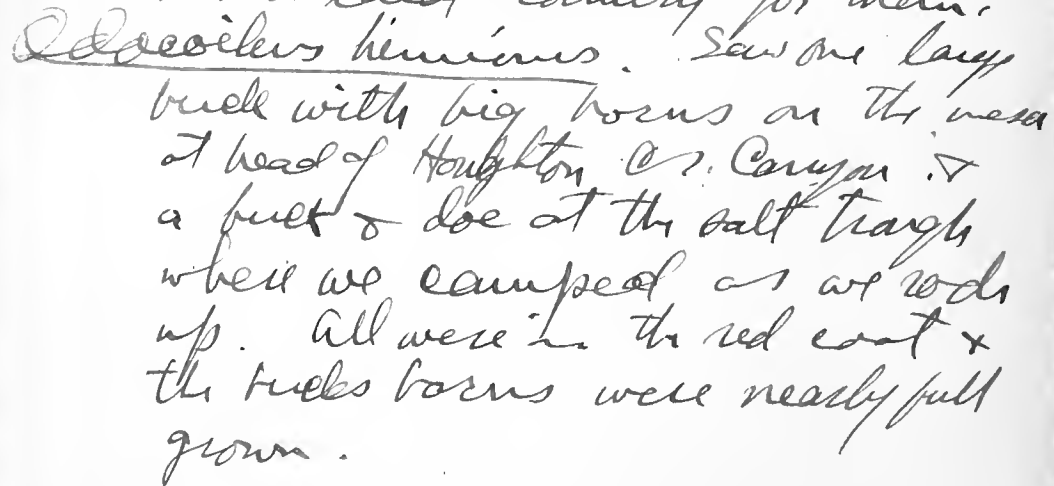 country for them.
Odocoileus hemionus. Saw one large
buck with big horns on the mesa
at head of Houghton Cr. Canyon &
a buck & doe at the salt trough
where we camped as we rode
up. All were in the red coat &
the bucks horns were nearly full
grown.